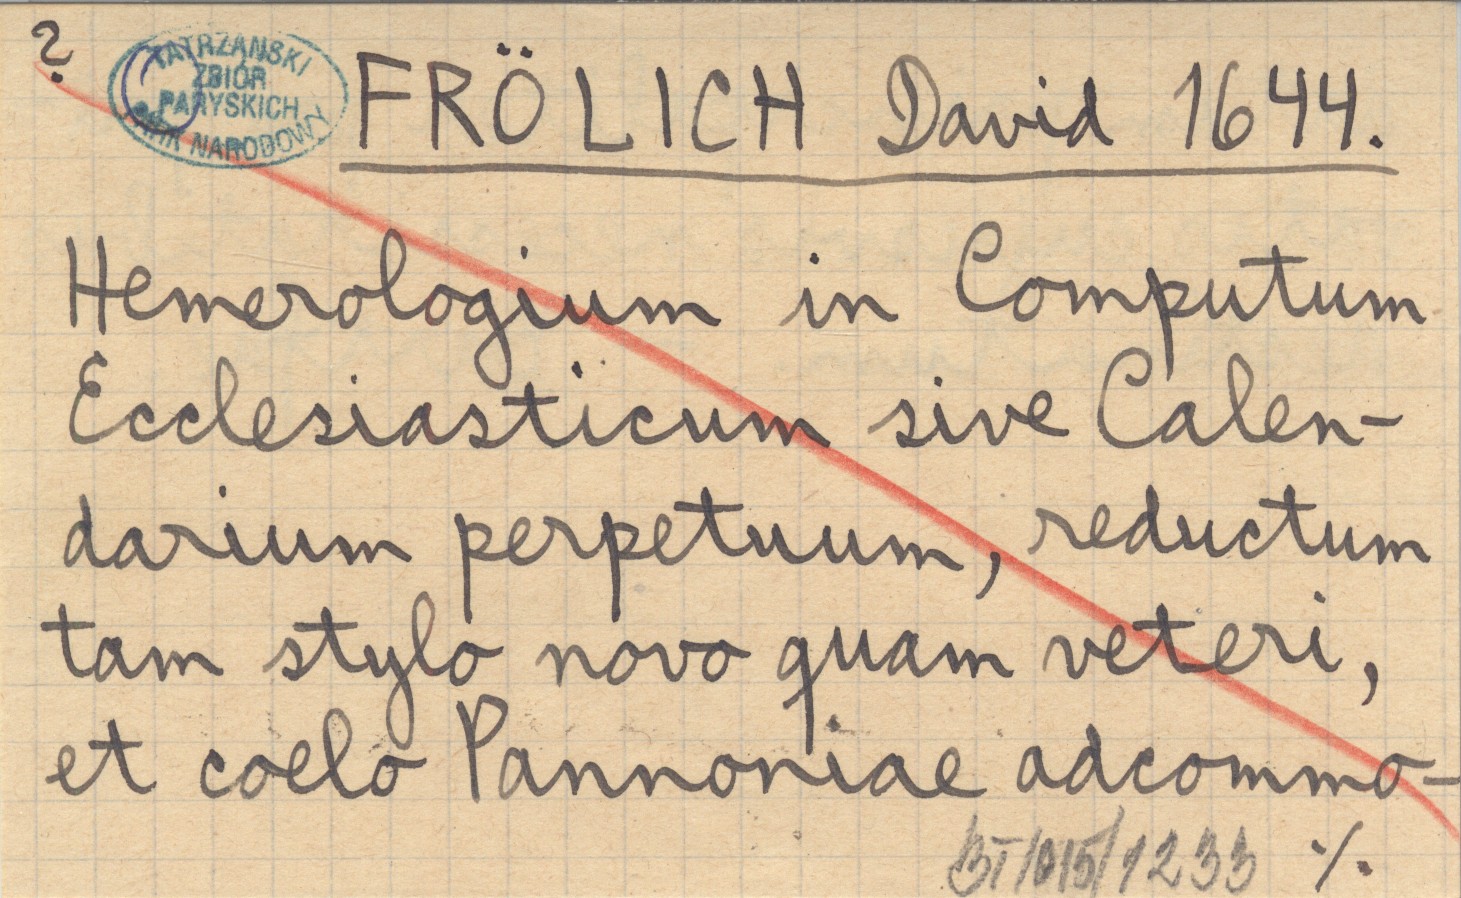 ?
TATRZAŃSKI
ZBIÓR
PARYSKICH
PARK NARODOWY
FRÖLICH David 1644.
Hemerologium in Computum
Ecclesiasticum sive Calen-
darium perpetuum, reductum
tam stylo novo quam veteri,
et coelo Pannoniae adcommo-
BT/015/1233 ./.